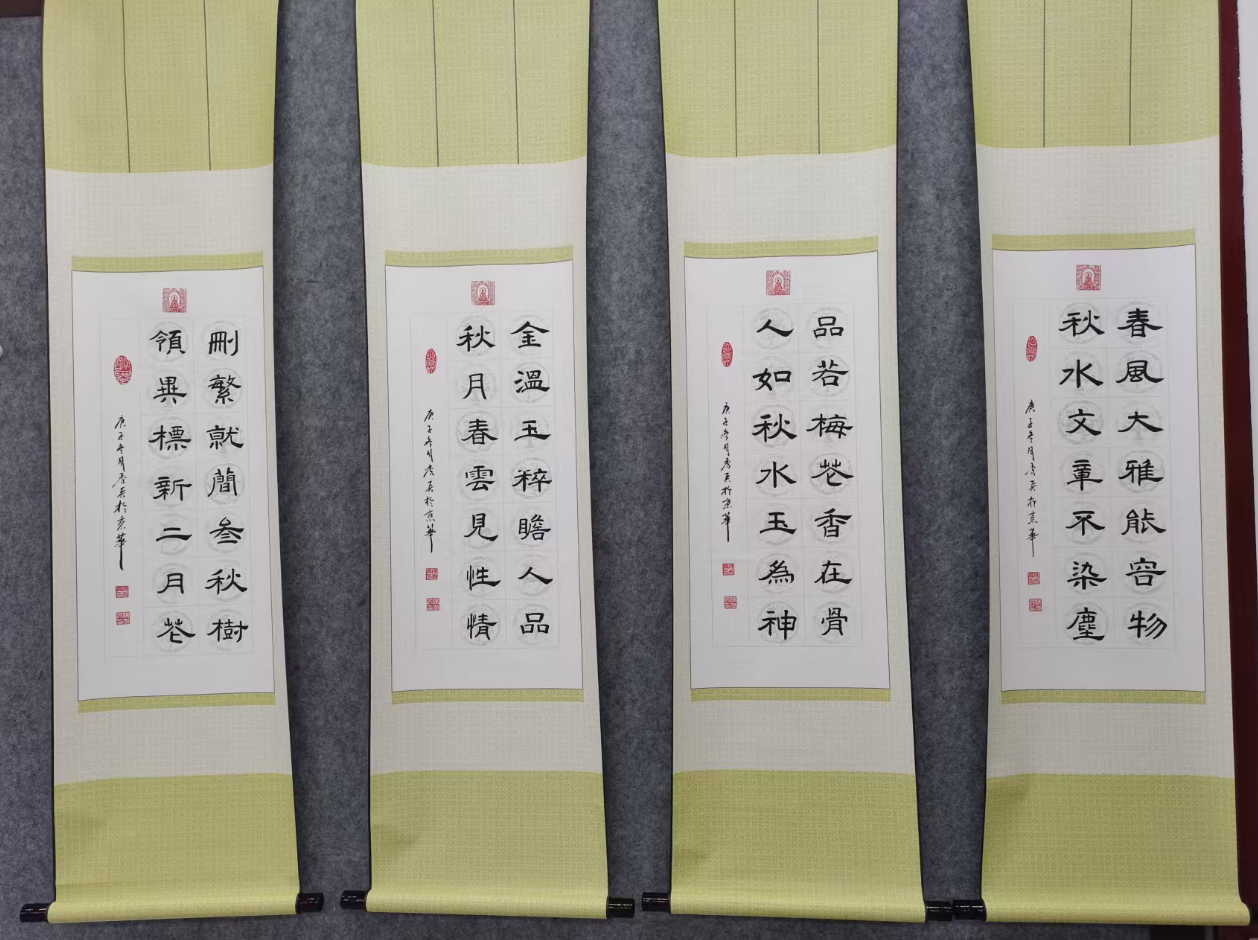 春風大雅能容物
秋水文章不染塵
庚子冬月秀英於京華
品若梅花香在骨
人如秋水玉為神
庚子冬月秀英於京華
金溫玉粹瞻人品
秋月春雲見性情
庚子冬月秀英於京華
刪繁就簡叁秋樹
領異標新二月花
庚子冬月秀英於京華